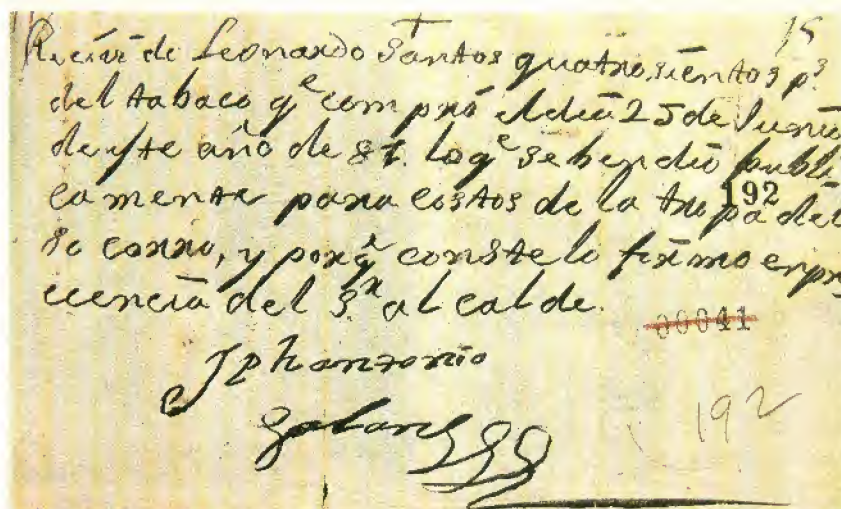 15
Recivi de Leonardo Santos quatrosientos p.s
del tabaco q.e compró el dia 25 de Junio
deste año de 81. loq.e se bendió publi
camente para costos de la tropa del
192
so corro, y porq.e conste lo firmo enpre
cencia del S.r alcalde.
00041
Jph antonio
Galan
192